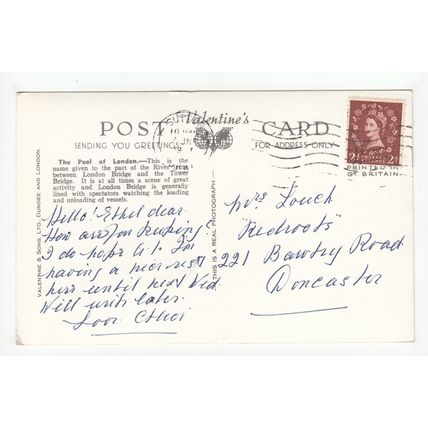 Valentine's
POST CARD
SENDING YOU GREETINGS FOR ADDRESS ONLY
The Pool of London.—This is the
name given to the part of the River
between London Bridge and the Tower
Bridge. It is at all times a scene of great
activity and London Bridge is generally
lined with spectators watching the loading
and unloading of vessels.
VALENTINE & SONS, LTD., DUNDEE AND LONDON.
THIS IS A REAL PHOTOGRAPH
PRINTED IN
GT. BRITAIN
Hello! Ethel dear.
How are you keeping?
I do hope A.1. I'm
having a nice rest
here until next Wed.
Will write later.
Love
Mrs Louch
"Redroots"
221 Bawtry Road
Doncaster